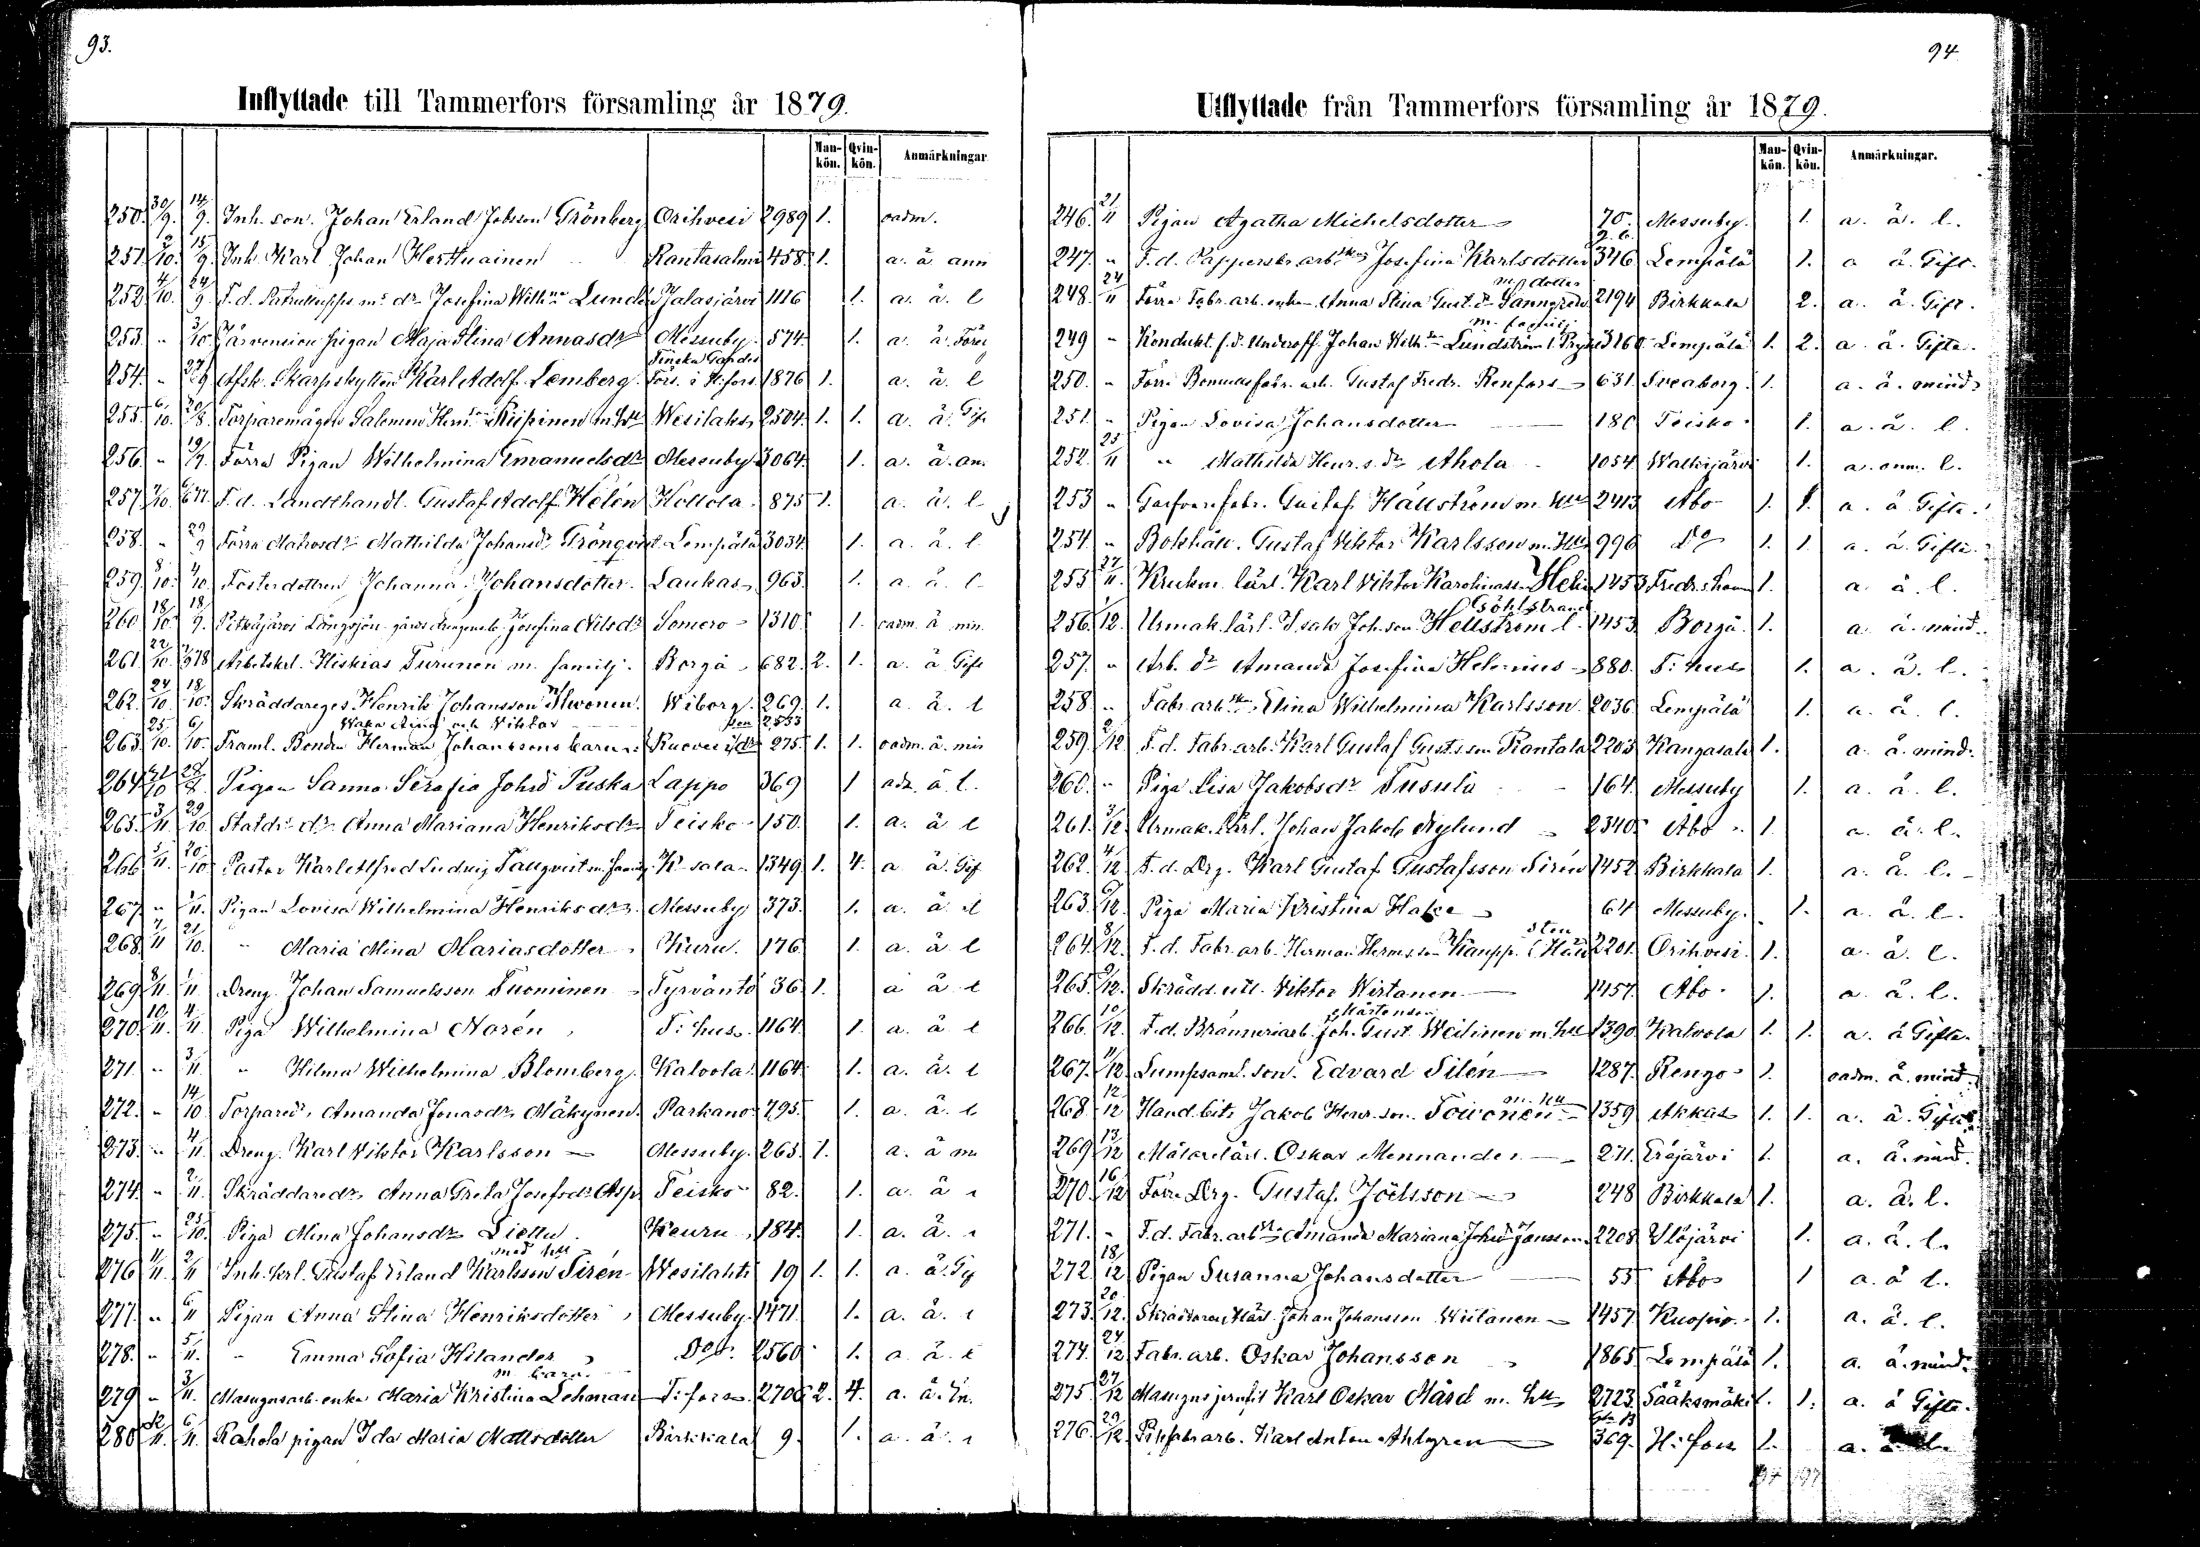 93.
Inflyttade till Tammerfors församling år 1879.
Man-kön. Qvin-kön. Anmärkningar
250. 30/9. 14/9. Inh. son. Johan Erland Jobsson Grönberg Orihvesi 2989 1. oadm.
251. 2/10. 15/9. Inh. Karl Johan Herttuainen Rantasalmi 458. 1. a. ä ann
252. 4/10. 24/9. F.d. Josefina Lund Jalasjärvi 1116 1. a. ä. l
253. " 3/10. Järvensivu pigan Maja Stina Annasdr Messuby. 574. 1. a. ä.
Finska Gardes
254. " 29/9 Afsk. Skarpskytten Karl Adolf Lemberg. Förs. i H:fors. 1876 1. a. ä. l
255. 6/10. 20/8. Torparemågen Salomon m. hu Wesilaks 2504. 1. 1. a. ä. Gif
256. " 19/9. Förra Pigan Wilhelmina Emanuelsdr Messuby 3064. 1. a. ä. an.
257. 7/10. F.d. Landthandl. Gustaf Adolf Helén Kollola 875 1. a. ä. l
258. " 29/9 Förra Mathilda Johansdr Grönqvist Lempälä 3034. 1. a. ä. l
259. 8/10. 4/10. Fosterdottren Johanna Johansdotter. Laukas 963. 1. a. ä. l
260 18/10. 18/9. Josefina Nilsdr Somero 1310. 1. oadm. ä min.
261. 22/10. Arbetskrl. Hiskias Turunen m. familj. Borgå 682. 2. 1. a. ä Gift
262. 24/10. 18/10. Skräddareges Henrik Johansson Wiborg. 269. 1. a. ä. l
och Viktor 2533
263. 25/10. 6/10. Framl. Bonden Herman Johanssons barn Ruovesi 275. 1. 1. oadm. ä. min
264 28/8. Pigan Sanna Serafia Johsd Puska Lappo 369 1 ä. l.
265. 3/11. 29/10. Statdr. dr. Anna Mariana Henriksdr Teisko 150. 1. a. ä l
266 5/11. 20/10 Pastor Karl Alfred Ludvig m. familj K-sala. 1349. 1. 4. a ä. Gif
267 " 1/11. Pigan Lovisa Wilhelmina Henriksdr Messuby 373. 1. a. ä l
268. 7/11 21/10. " Maria Mina Mariasdotter Kuru. 176. 1. a. ä l
269 8/11. 1/11. Dreng. Johan Samuelsson Tuominen Tyrväntö 36 1. a ä l
270. 10/11. 4/11. Piga Wilhelmina Norén T:hus 1164. 1. a. ä l
271. " 3/11. " Hilma Wilhelmina Blomberg. Kalvola. 1164. 1. a. ä. l
272. " 14/10 Torpared. Amanda Jonasdr Mäkynen. Parkano 795. 1. a. ä. l
273. " 4/11. Dreng. Karl Viktor Karlsson Messuby. 265. 1. a. ä
274. " 2/11. Skräddaredr Anna Greta Josefsdr Asp Teisko 82. 1. a. ä
275. " 25/10. Piga Mina Johansdr Liettu. Keuru 184. 1. a. ä.
med hu
276 11/11. 2/11 Inh. krl. Gustaf Erland Karlsson Sirén Wesilahti 19 1. 1. a. ä. Gif
277. " 6/11 Pigan Anna Stina Henriksdotter Messuby 1471. 1. a. ä.
278. " 5/11. " Emma Sofia Hilander Do. 2560 1. a. ä.
m. barn.
279 " 3/11. Masugnsarb. enka Maria Kristina Lehman T:fors. 2706 2. 4. a. ä. En.
280 12/11. 6/11. Rahola pigan Ida Maria Mattsdotter Birkkala 9. 1. a. ä.
94
Utflyttade från Tammerfors församling år 1879.
Man-kön. Qvin-kön. Anmärkningar.
246. 21/11 Pigan Agatha Michelsdotter 70. Messuby. 1. a. ä. l.
247. " F.d. Josefina Karlsdotter 346 Lempälä 1. a ä. Gift.
med dotter
248. 24/11 Förra Fabr. arb. enkan Anna Stina Gust. dr 2194 Birkkala 2. a. ä. Gift.
m. familj
249 " Kondukt. f.d. Underoff. Johan Wilh. Lundström 3160 Lempälä 1. 2. a ä. Gifta.
250. " Förre Bomullsfabr. arb. Gustaf Fredr. Renfors 631. Sveaborg. 1. a. ä. mind.
251. " Pigan Lovisa Johansdotter 180 Teisko 1. a. ä. l.
252. 25/11 " Mathilda Henr.s. dr Ahola 1054 Walkijärvi 1. a. ann. l.
253 " Garfvarefabr. Gustaf Hällström m. hu 2413 Åbo 1. 1. a. ä Gifta.
254. " Bokhåll. Gustaf Viktor Karlsson m. hu 996 Do 1. 1. a. ä. Gifta.
255 27/11. Krukm. lärl. Karl Viktor 1453 Fredr.shamn 1. a. ä. l.
256. 1/12. Urmak. lärl. Isak Joh.son Hellström l. 1453 Borgå. 1. a. ä. mind.
257. " Arb. dr Amanda Josefina Helenius 880. T:hus 1. a. ä. l.
258. " Fabr. arb. Elina Wilhelmina Karlsson. 2036 Lempälä 1. a. ä. l.
259. 2/12 F.d. Fabr. arb. Karl Gustaf Gusts.son Rantala 2203 Kangasala 1. a. ä. mind.
260. " Piga Lisa Jakobsdr Tusula 164. Messuby 1. a. ä. l.
261. 3/12 Urmak. Lärl. Johan Jakob Nylund 2340. Åbo 1. a. ä. l.
262. 4/12 F.d. Drg. Karl Gustaf Gustafsson Sirén 1452 Birkkala 1. a. ä. l.
263. 6/12. Piga Maria Kristina 64 Messuby. 1. a. ä. l.
264. 8/12. F.d. Fabr. arb. Herman Herms.son Kauppi 2201. Orihvesi. 1. a. ä. l.
265. 9/12. Skrädd. Viktor Wirtanen 1457. Åbo 1. a. ä. l.
Mårtensson
266. 10/12. F.d. Bränneriarb. Joh. Gust. m. hu 1390. Kalvola 1. 1. a. ä Gifta.
267. 11/12 Lumpsaml. son. Edvard Silén 1287. Rengo 1. oadm. ä. mind.
m. hu
268. 12/12 Jakob Henr. son. Toivonen 1359 Akkas 1. 1. a. ä. Gifta.
269 13/12 Målarelärl. Oskar Mennander. 271. Eräjärvi 1. a. ä. mind.
270. 16/12 Förre Drg. Gustaf Joelsson 248 Birkkala 1. a. ä. l.
271. " F.d. Fabr. arb. Amanda Mariana Johsdr Jansson. 2208 Ylöjärvi 1. a. ä. l.
272. 18/12 Pigan Susanna Johansdotter 55 Åbo 1 a. ä l.
273. 20/12. Skräddare lärl. Johan Johansson Wirtanen 1457. Kuopio. 1. a. ä. l.
274. 24/12 Fabr. arb. Oskar Johansson 1865 Lempälä 1. a. ä. mind.
275. 27/12 Masugns Karl Oskar Måsd m. hu 2723. Sääksmäki 1. 1. a. ä Gifta.
276. 29/12. arb. Karl Anton Ahlgren 369. H:fors 1. a. ä l.